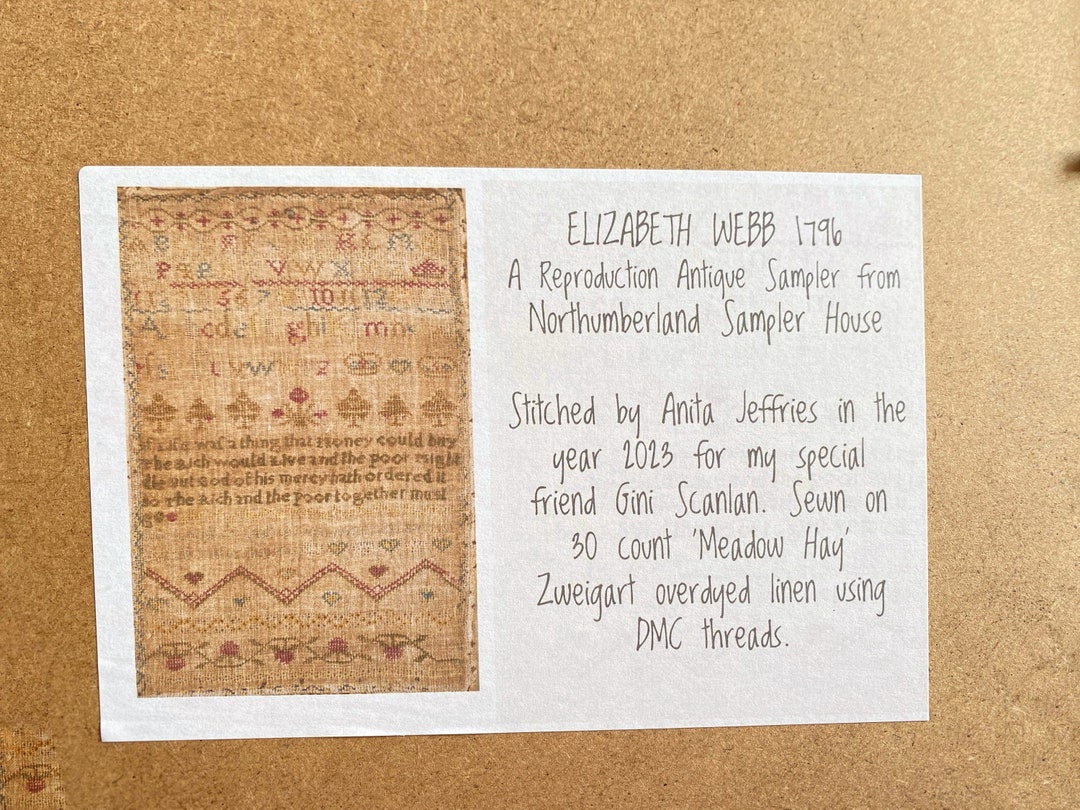 P q r V W X
10 11 12
If Life was a thing that money could buy
the Rich would Live and the poor might
die but God of his mercy hath ordered it
so the Rich and the Poor together must
go
ELIZABETH WEBB 1796
A Reproduction Antique Sampler from
Northumberland Sampler House
Stitched by Anita Jeffries in the
year 2023 for my special
friend Gini Scanlan. Sewn on
30 count 'Meadow Hay'
Zweigart overdyed linen using
DMC threads.